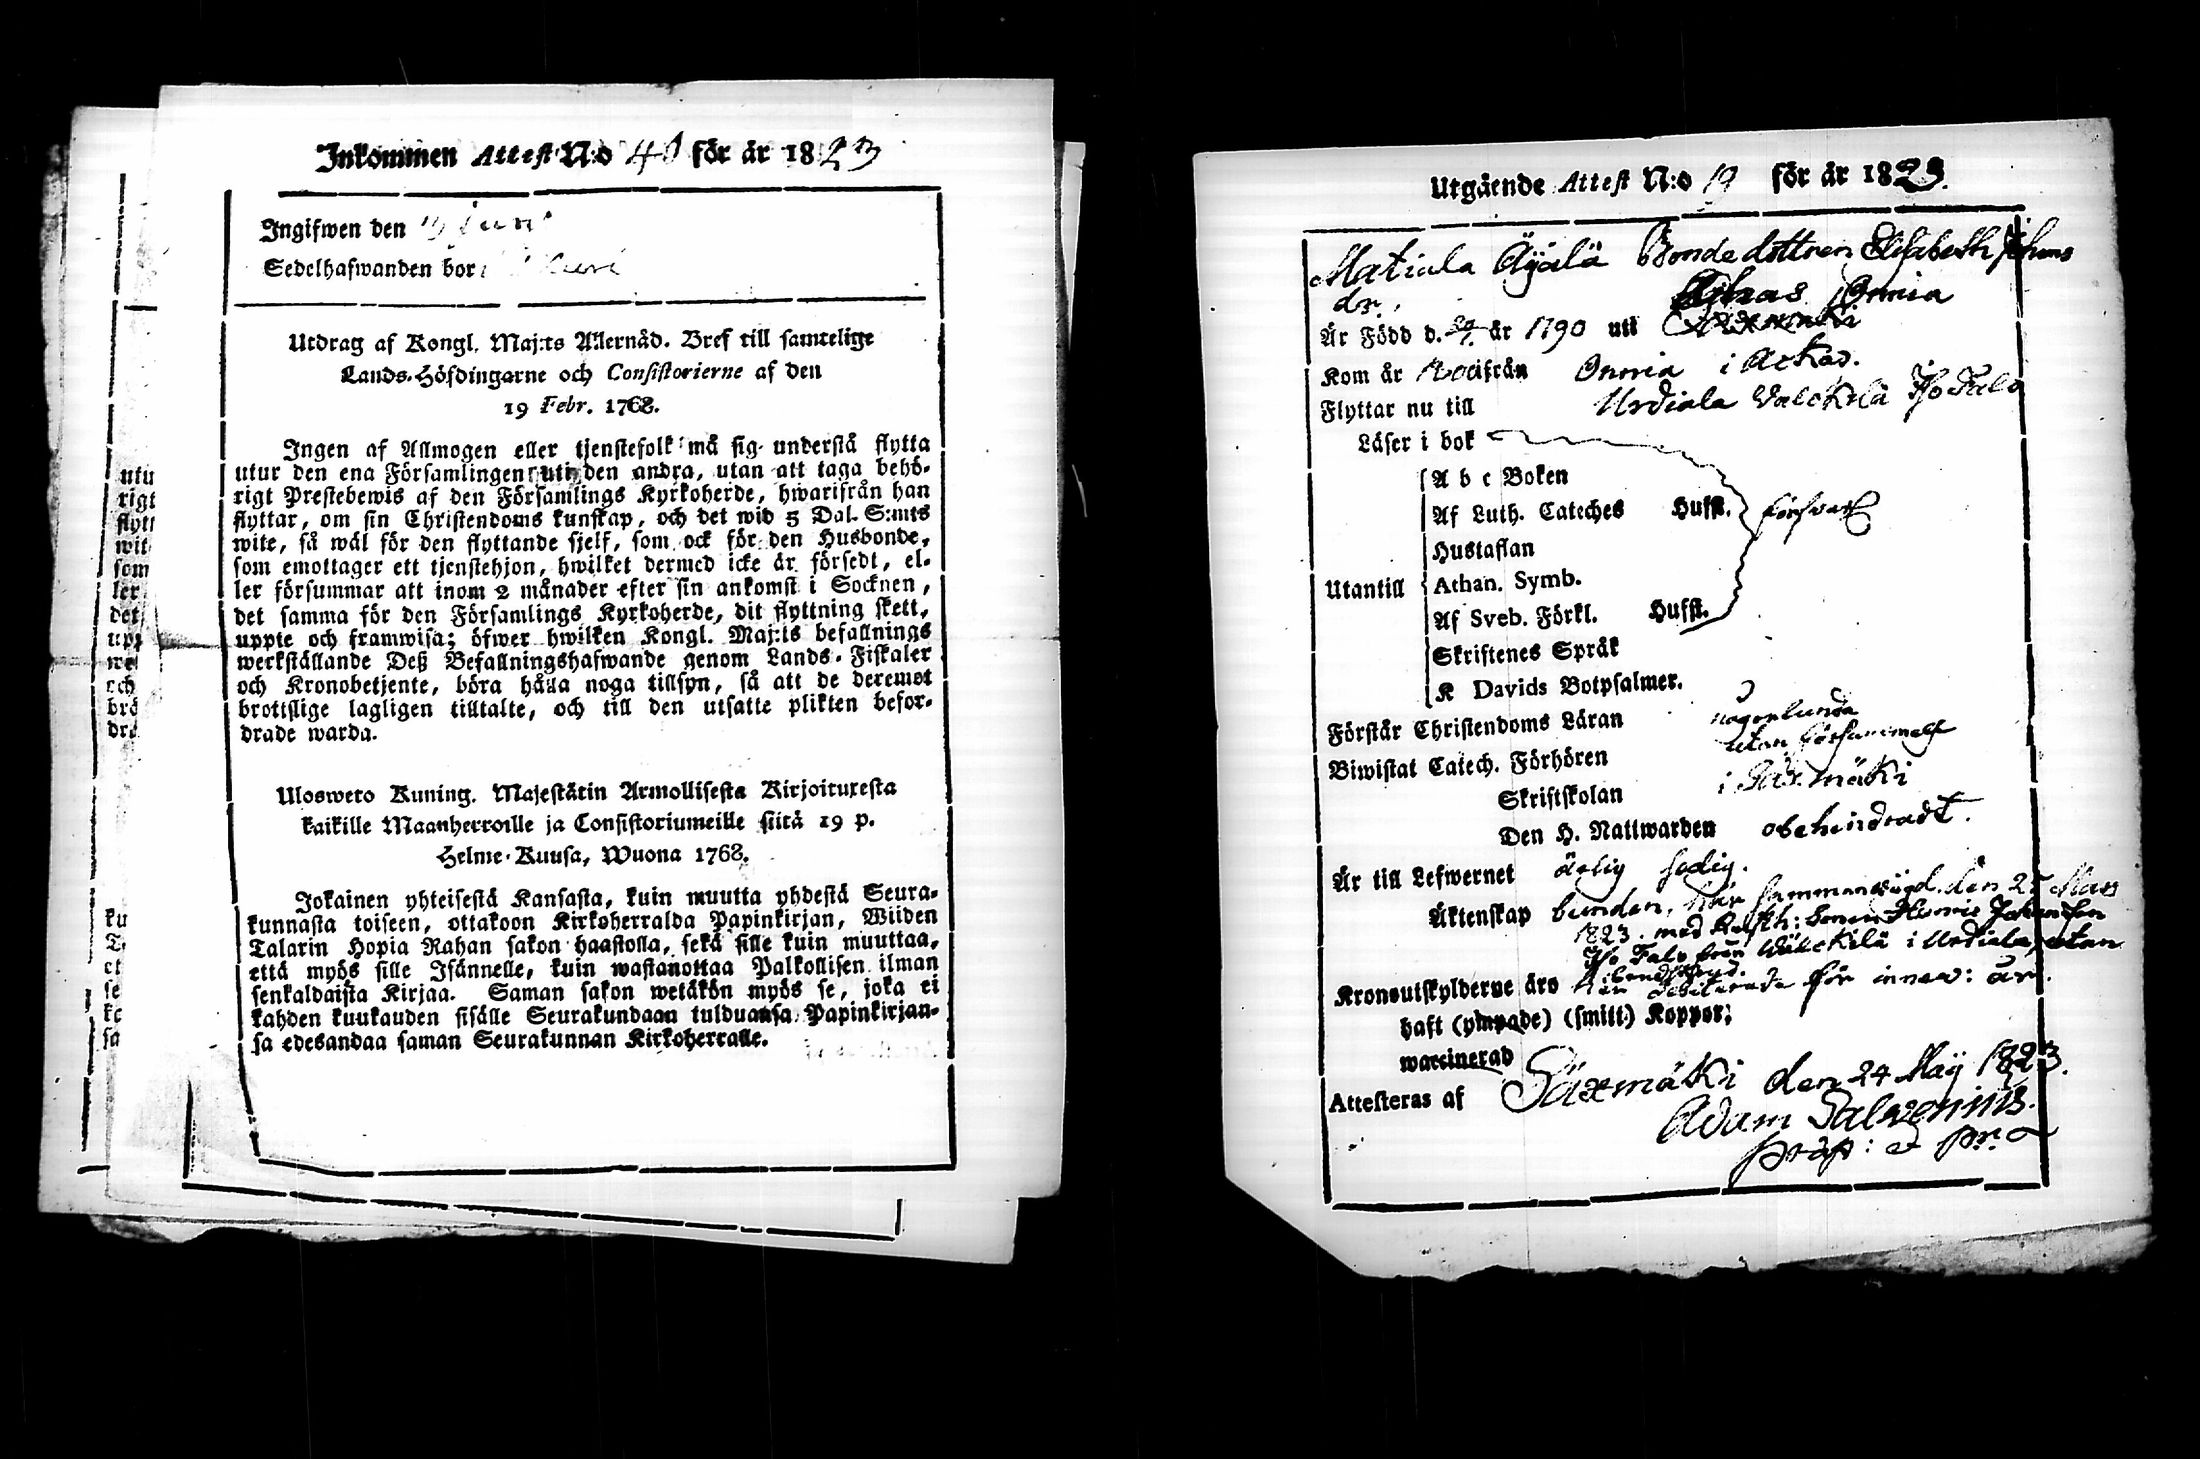 Inkommen Attest N:o 40 för år 1823
Ingifwen den 19 Juni
Sedelhafwanden bor i
Utdrag af Kongl. Maj:ts Allernåd. Bref till samtelige
Lands-Höfdingarne och Consistorierne af den
19 Febr. 1768.
Ingen af Allmogen eller tjenstefolk må sig understå flytta
utur den ena Församlingen uti den andra, utan att taga behö-
rigt Prestebewis af den Församlings Kyrkoherde, hwarifrån han
flyttar, om sin Christendoms kunskap, och det wid 5 Dal. S:mts
wite, så wäl för den flyttande sjelf, som ock för den Husbonde,
som emottager ett tjenstehjon, hwilket dermed icke är försedt, el-
ler försummar att inom 2 månader efter sin ankomst i Socknen,
det samma för den Församlings Kyrkoherde, dit flyttning skett,
uppte och framwisa; öfwer hwilken Kongl. Maj:ts befallnings
werkställande Deß Befallningshafwande genom Lands-Fiskaler
och Kronobetjente, böra hålla noga tillsyn, så att de deremot
brottslige lagligen tilltalte, och till den utsatte plikten befor-
drade warda.
Uloswero Kuning. Majestätin Armollisesta Kirjoituxesta
kaikille Maanherroille ja Consistoriumeille siitä 19 p.
Helme-Kuusa, Wuona 1768.
Jokainen yhteisestä Kansasta, kuin muutta yhdestä Seura-
kunnasta toiseen, ottakoon Kirkoherralda Papinkirjan, Wiiden
Talarin Hopia Rahan sakon haastolla, sekä sille kuin muuttaa,
että myös sille Isännelle, kuin wastanottaa Palkollisen ilman
senkaldaista Kirjaa. Saman sakon wetäkön myös se, joka ei
kahden kuukauden sisälle Seurakundaan tulduansa Papinkirjan-
sa edesandaa saman Seurakunnan Kirkoherralle.
Utgående Attest N:o 19 för år 1823.
Matiala Äyälä Bonde dottren Elisabeth Johans
dr.
Akkas Onnia
Är Född d. år 1790 uti
Kom år ifrån Onnia i Ackas.
Flyttar nu till Urdiala Walckila Iso Talo
Läser i bok
A b c Boken
Af Luth. Cateches Hufst. försvarl.
Hustaflan
Utantill Athan. Symb.
Af Sveb. Förkl. Hufst.
Skriftenes Språk
K Davids Botpsalmer.
Förstår Christendoms Läran någorlunda
Biwistat Catech. Förhören utan försummelse
Skriftskolan i Säxmäki
Den H. Nattwarden obehindradt.
Är till Lefwernet ärlig sedig.
Äktenskap bunden, här sammanwigd. den 25 Mars
1823. med Rusth: Sonen Henric Johansson
Iso Talo från Walckila i Urdiala, utan
Kronoutskylderne äro debiterade för innew: år.
haft (ympade) (smitt) Koppor;
waccinerad
Attesteras af Säxmäki den 24 Maji 1823.
Adam Salvenius.
præp: & pr.